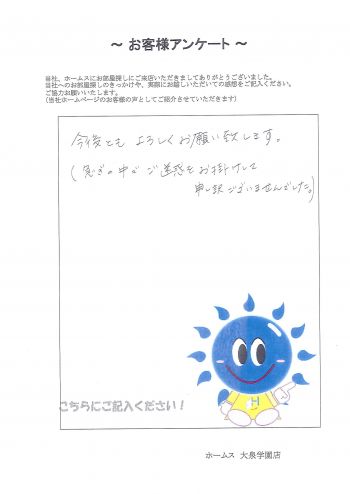 ～ お客様アンケート ～
当社、ホームスにお部屋探しにご来店いただきましてありがとうございました。
当社へのお部屋探しのきっかけや、実際にお越しいただいての感想をご記入ください。
ご協力お願いいたします。
(当社ホームページのお客様の声としてご紹介させていただきます)
今後とも よろしくお願い致します。
(急ぎの中で ご迷惑をお掛けして
申し訳ございませんでした。)
H
こちらにご記入ください！
ホームス 大泉学園店